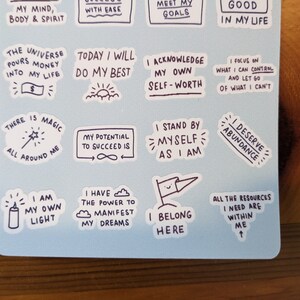 MY MIND,
BODY & SPIRIT
SUCCESS
WITH EASE
MEET MY
GOALS
GOOD
IN MY LIFE
THE UNIVERSE
POURS MONEY
INTO MY LIFE
$
TODAY I WILL
DO MY BEST
I ACKNOWLEDGE
MY OWN
SELF-WORTH
I FOCUS ON
WHAT I CAN CONTROL
AND LET GO
OF WHAT I CAN'T
THERE IS MAGIC
ALL AROUND ME
MY POTENTIAL
TO SUCCEED IS
I STAND BY
MYSELF
AS I AM
I DESERVE
ABUNDANCE
I AM
MY OWN
LIGHT
I HAVE
THE POWER TO
MANIFEST
MY DREAMS
I BELONG
HERE
ALL THE RESOURCES
I NEED ARE
WITHIN
ME